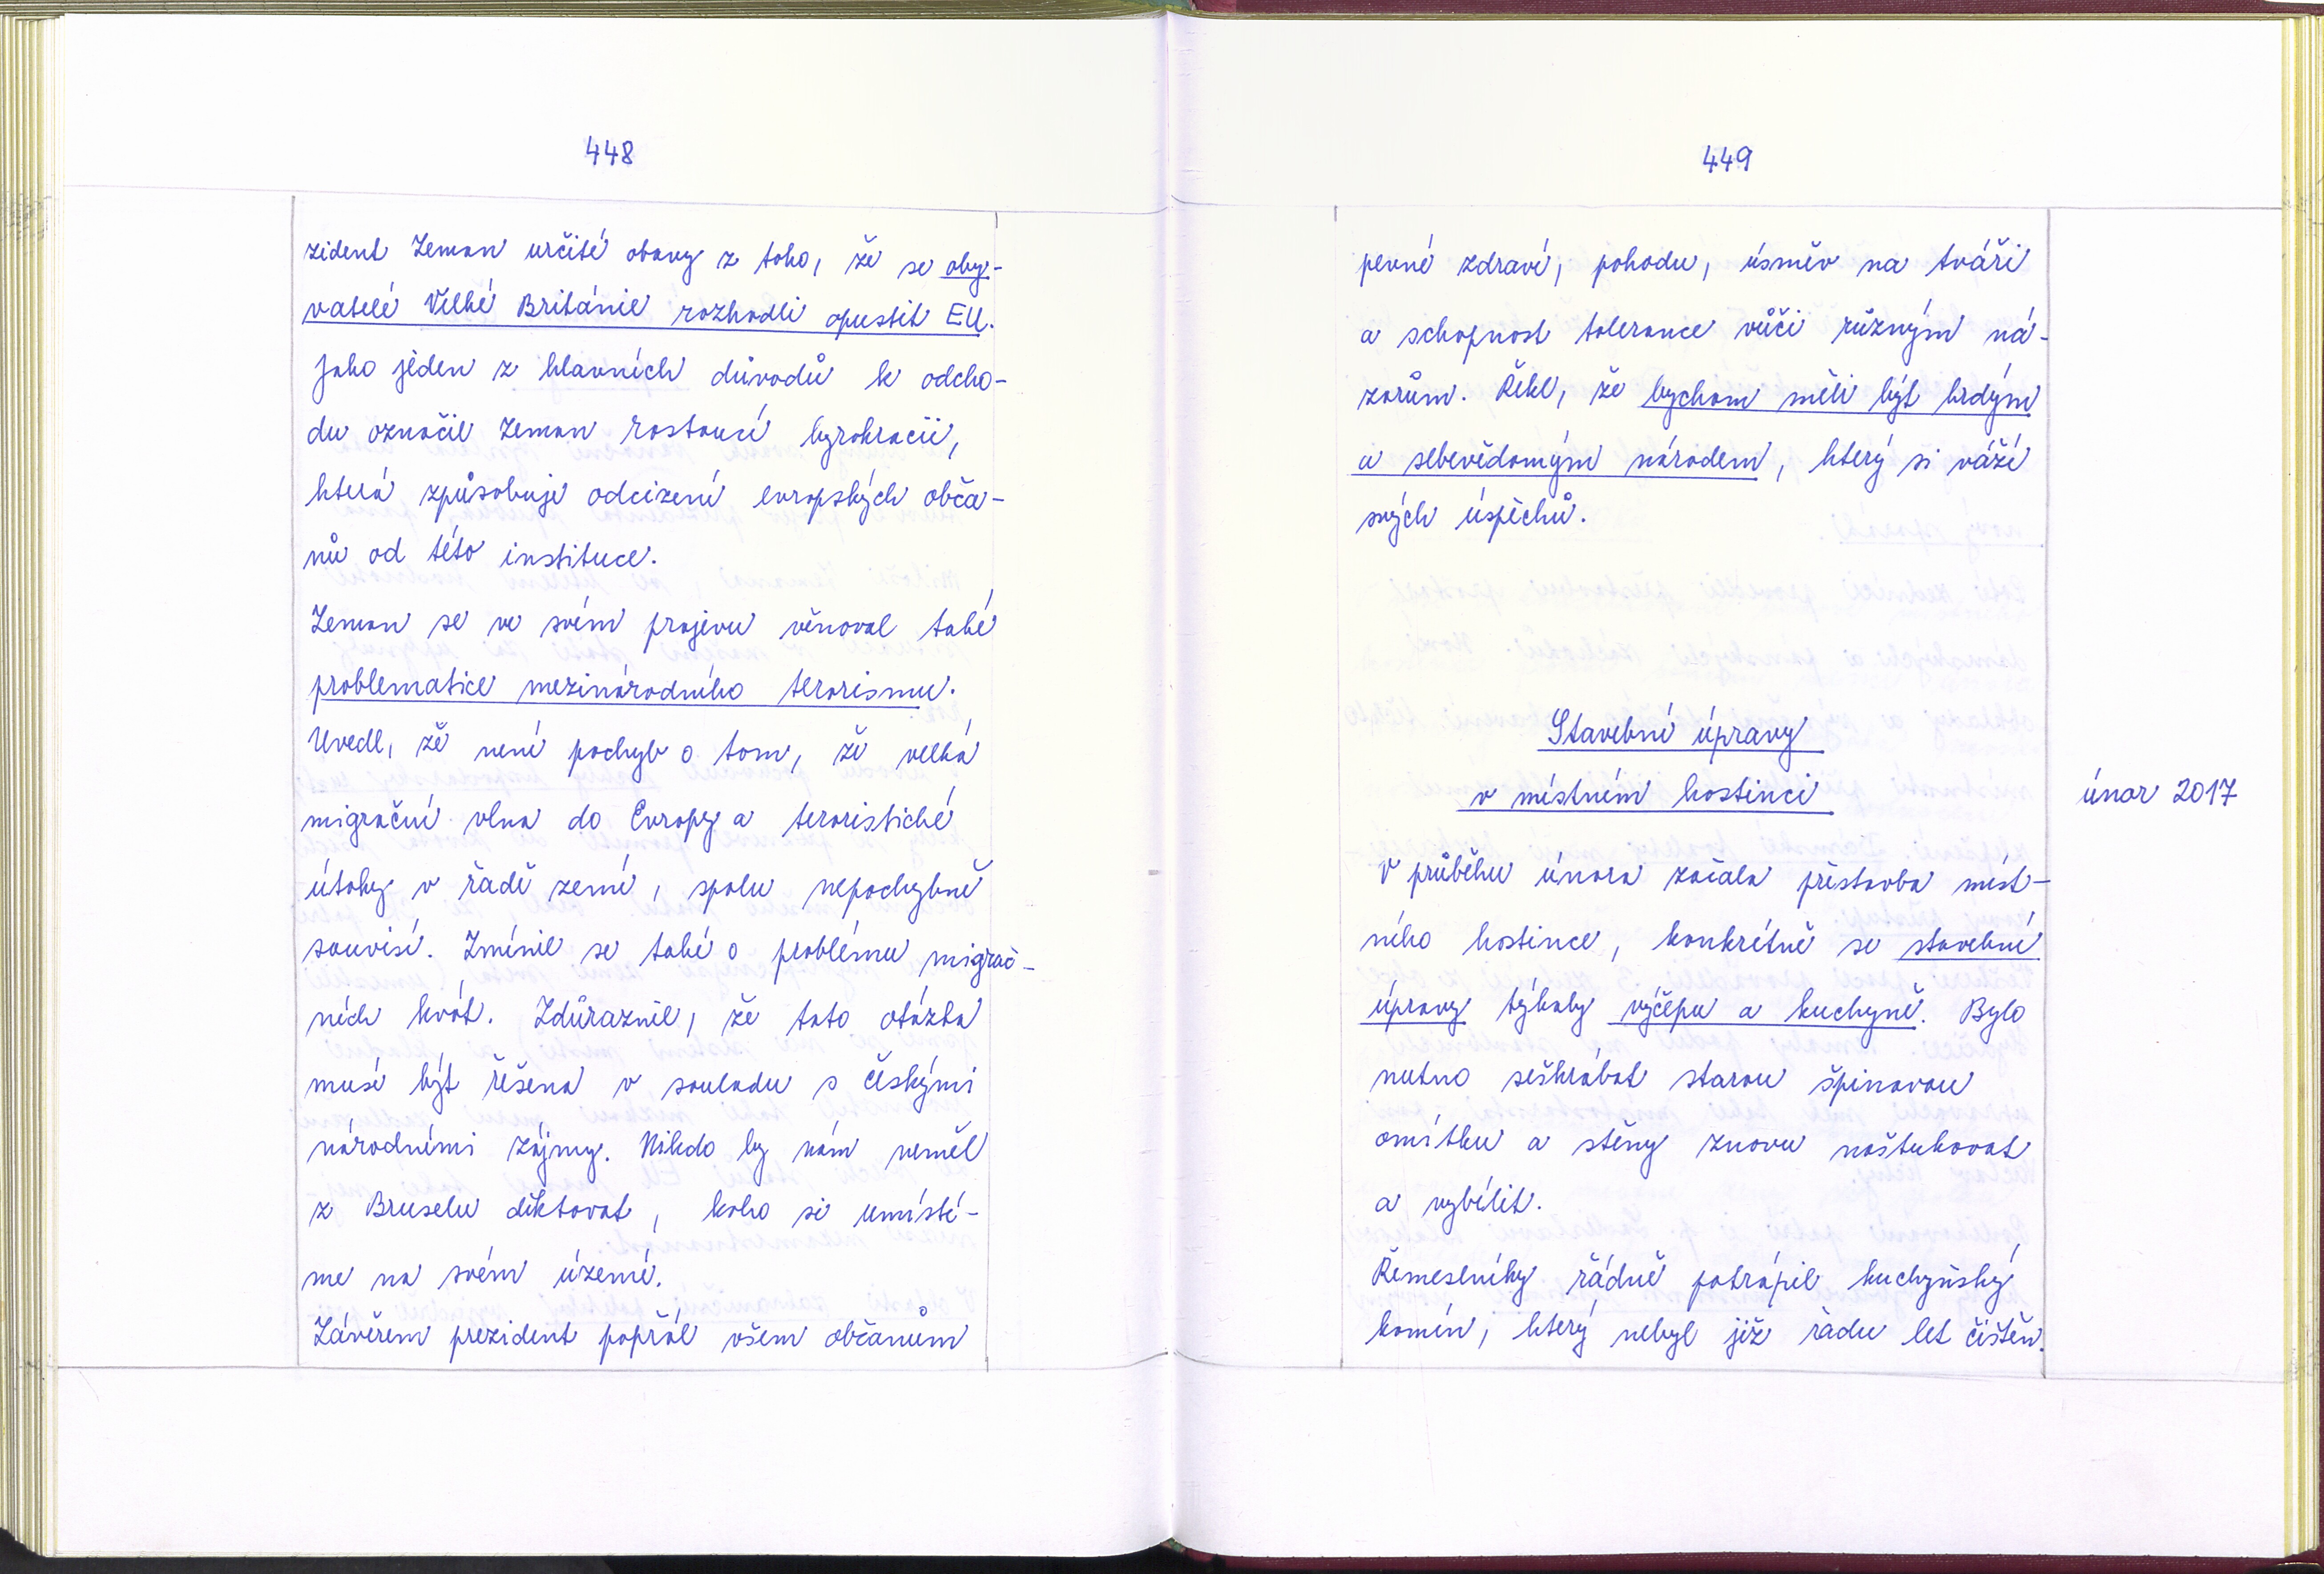 448
zident Zeman určité obavy z toho, že se oby-
vatelé Velké Británie rozhodli opustit EU.
Jako jeden z hlavních důvodů k odcho-
du označil Zeman rostoucí byrokracii,
která způsobuje odcizení evropských obča-
nů od této instituce.
Zeman se ve svém projevu věnoval také
problematice mezinárodního terorismu.
Uvedl, že není pochyb o tom, že velká
migrační vlna do Evropy a teroristické
útoky v řadě zemí, spolu nepochybně
souvisí. Zmínil se také o problému migrač-
ních kvót. Zdůraznil, že tato otázka
musí být řešena v souladu s českými
národními zájmy. Nikdo by nám neměl
z Bruselu diktovat, koho si umístí-
me na svém území.
Závěrem prezident popřál všem občanům
449
pevné zdraví, pohodu, úsměv na tváři
a schopnost tolerance vůči různým ná-
zorům. Řekl, že bychom měli být hrdým
a sebevědomým národem, který si váží
svých úspěchů.
Stavební úpravy
v místním hostinci
únor 2017
V průběhu února začala přestavba míst-
ního hostince, konkrétně se stavební
úpravy týkaly výčepu a kuchyně. Bylo
nutno seškrábat starou špinavou
omítku a stěny znovu naštukovat
a vybílit.
Řemeslníky řádně potrápil kuchyňský
komín, který nebyl již řadu let čištěn.